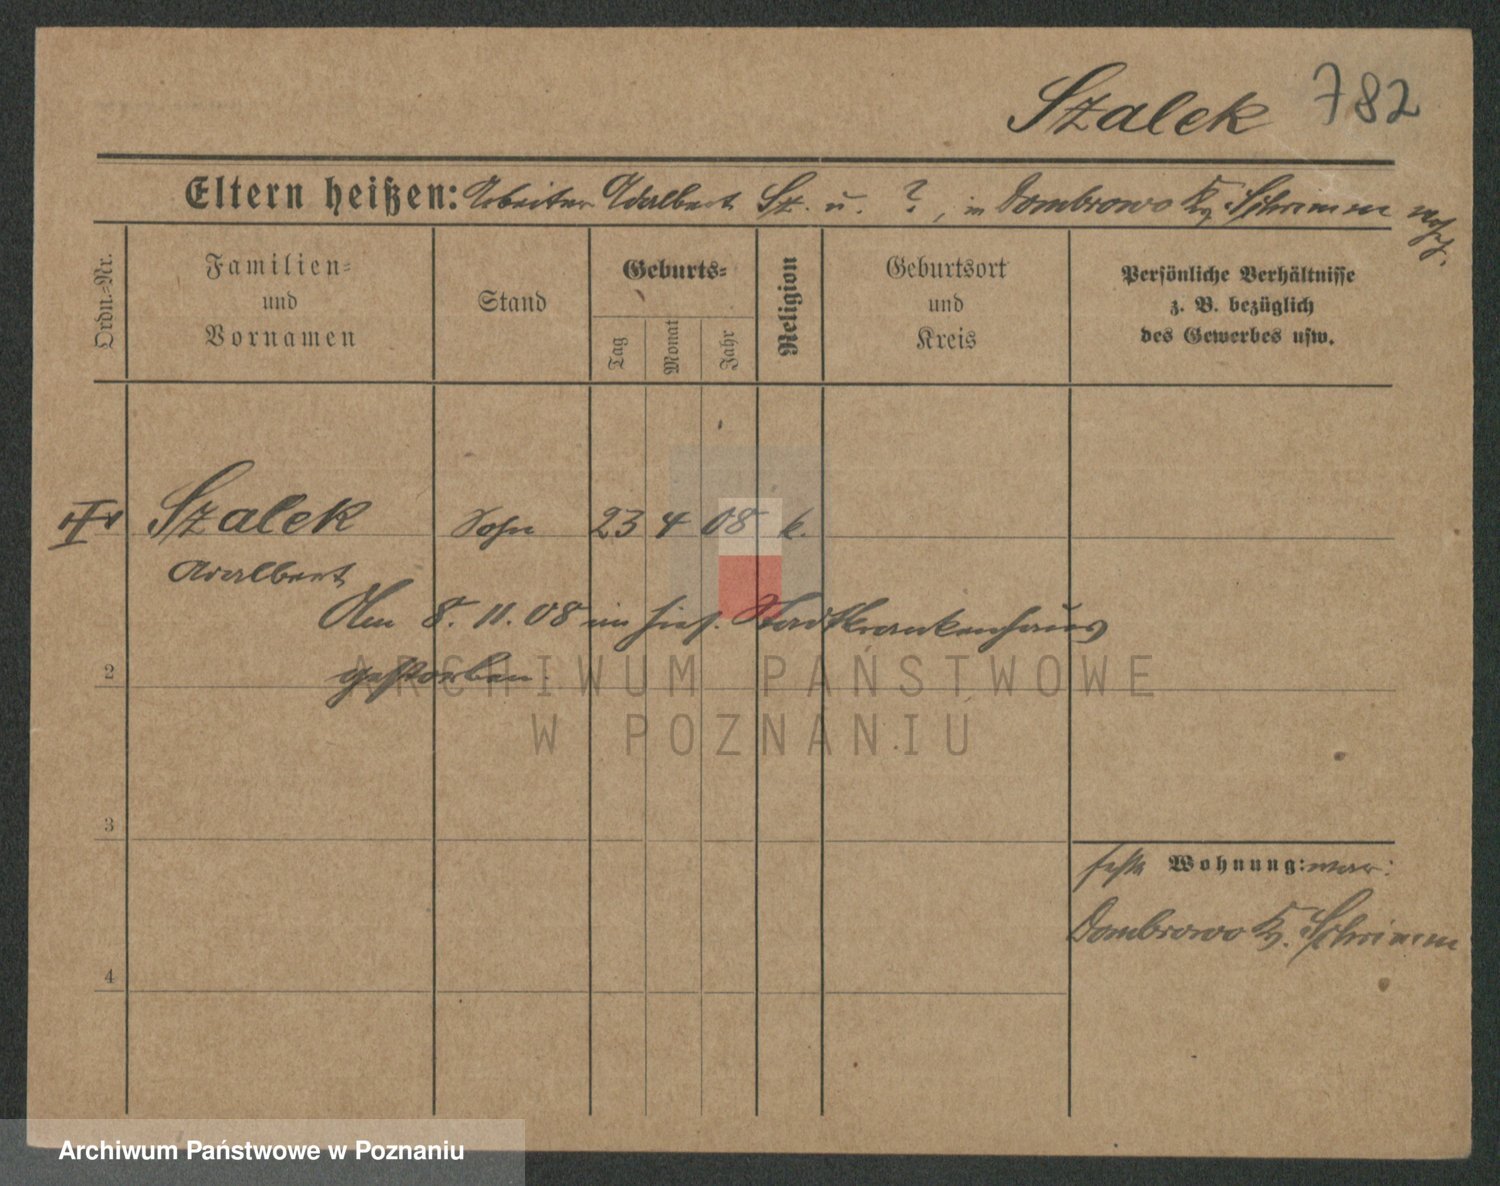 Szalek 782
Eltern heißen: Arbeiter Adalbert Sz. u. ?, in Dombrowo Kr. Schrimm
Ordn.-Nr.
Familien- und Vornamen
Stand
Geburts-
Tag
Monat
Jahr
Religion
Geburtsort und Kreis
Persönliche Verhältnisse z. B. bezüglich des Gewerbes usw.
Szalek Sohn 23 4 08 k.
Adalbert
Am 8. 11. 08 im hies. Stadtkrankenhaus
2 gestorben.
ARCHIWUM PAŃSTWOWE
W POZNANIU
3
Wohnung: war:
Dombrowo Kr. Schrimm
4
Archiwum Państwowe w Poznaniu